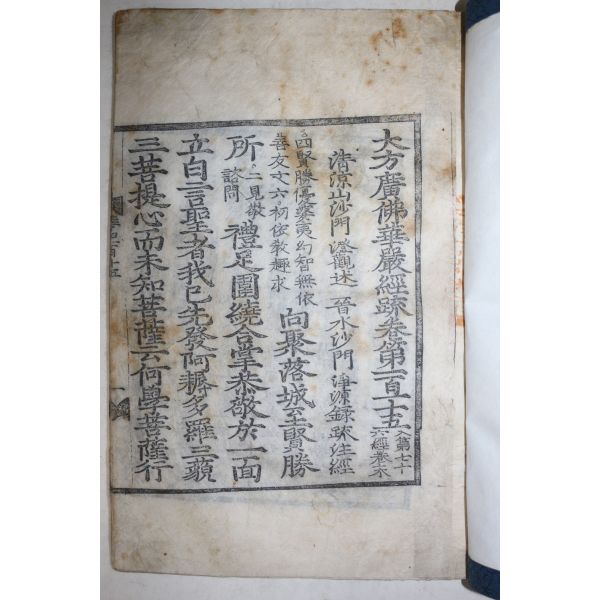 大方廣佛華嚴經疏卷第一百十五 入第七十
六經卷末
清涼山沙門 澄觀述 晉水沙門 淨源錄疏注經
四賢勝優婆夷幻智無依
善友文六初依敎趣求 向聚落城至賢勝
所 二見敬
諮問 禮足圍繞合掌恭敬於一面
立白言聖者我已先發阿耨多羅三藐
三菩提心而未知菩薩云何學菩薩行